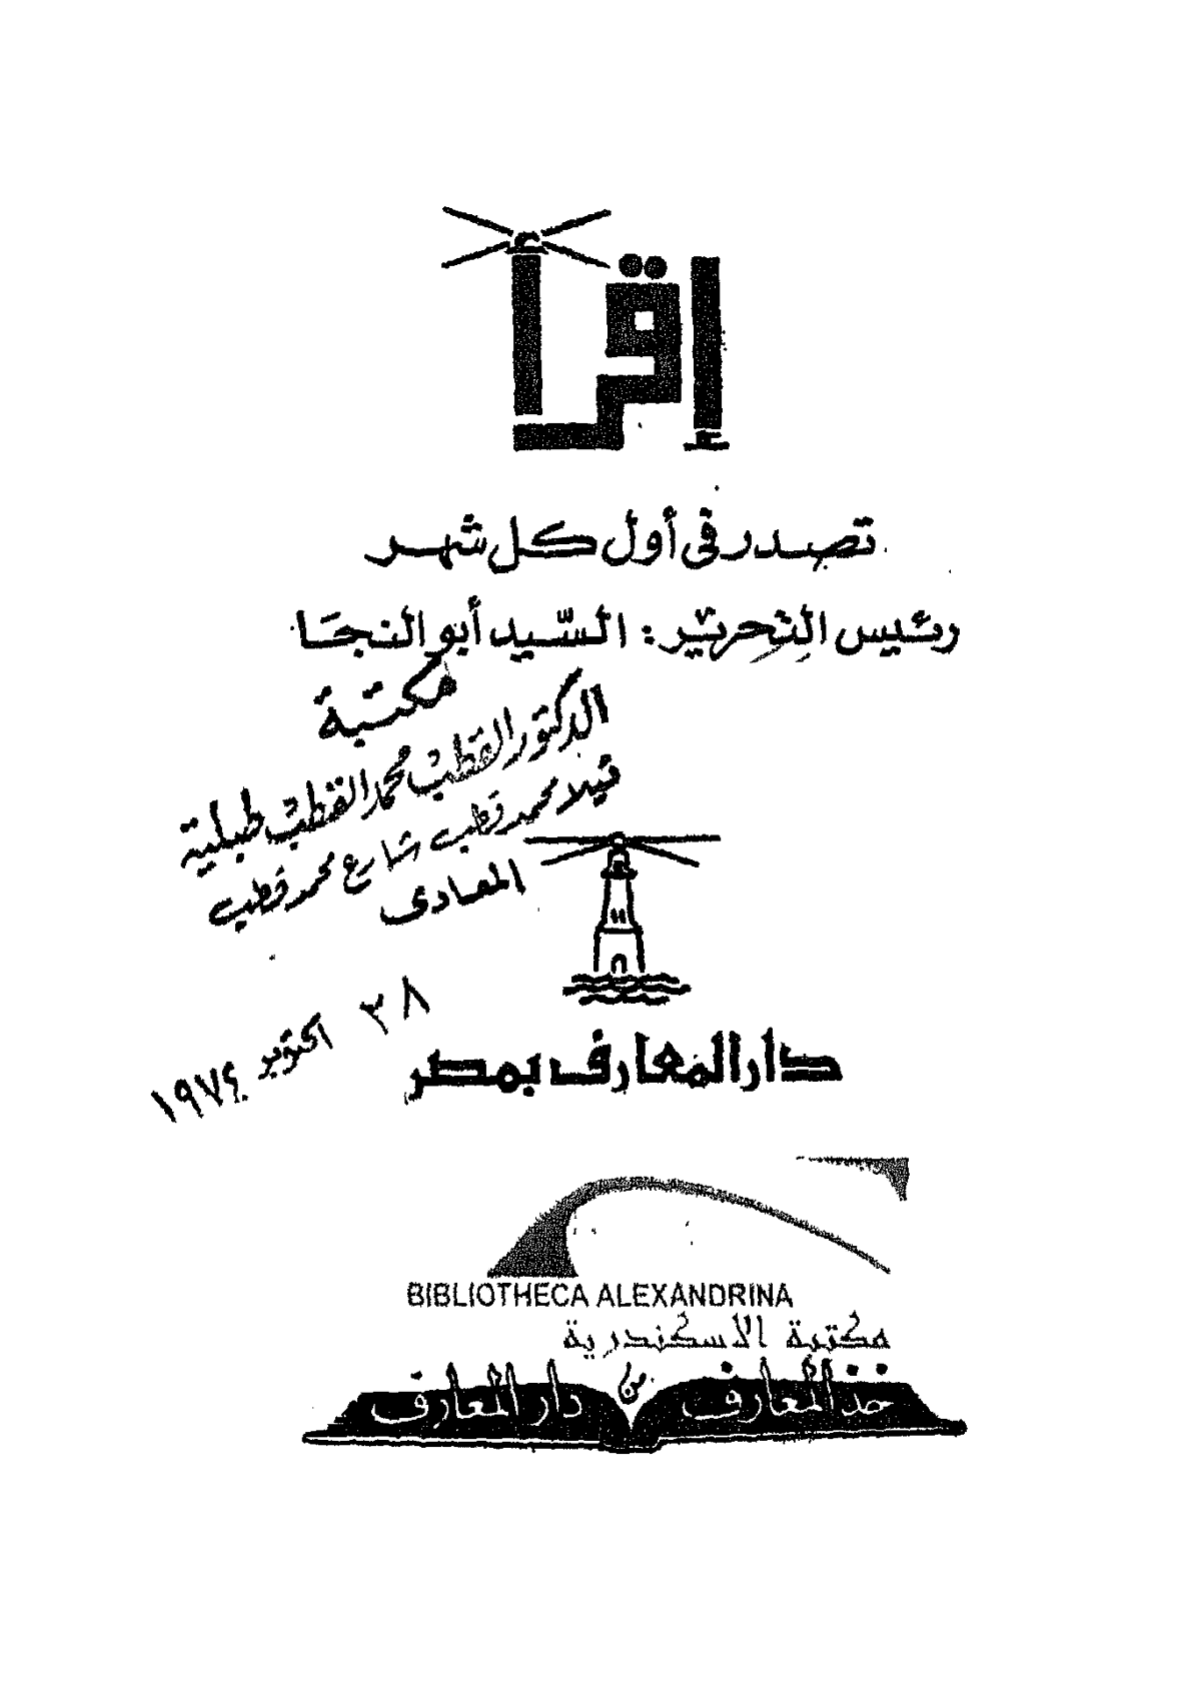 إقرأ
تصدر في أول كل شهر
رئيس التحرير: السيد أبو النجا
مكتبة
الدكتور القطب محمد القطب طبلية
فيلا محمد قطب شارع محمد قطب
المعادى
٢٨ اكتوبر ١٩٧٤
دار المعارف بمصر
BIBLIOTHECA ALEXANDRINA
مكتبة الاسكندرية
خذ المعارف من دار المعارف